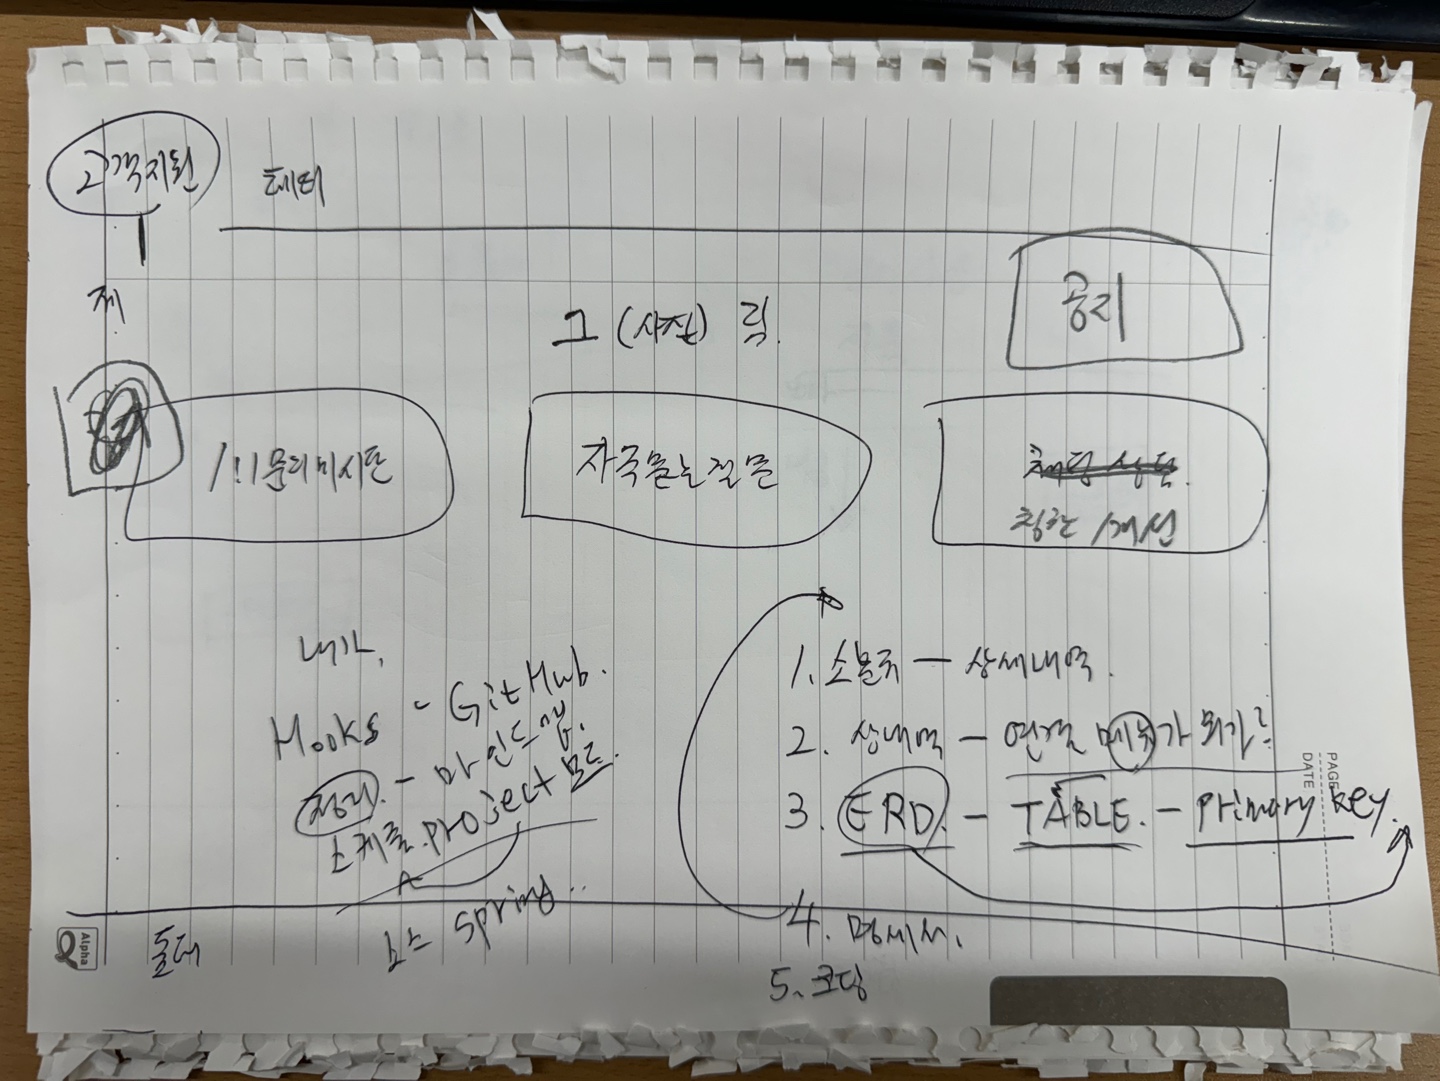 고객지원
헤더
제
그 (사진) 림.
공지
1:1 문의 게시판
자주 묻는 질문
채팅 상담.
칭찬 개선
내가,
Hooks - GitHub.
정리. - 마인드맵.
스케줄. project 모드.
소스 spring..
1. 소분류 - 상세내역.
2. 상세내역 - 연결 메뉴가 뭐가?
3. ERD. - TABLE. - primary key.
4. 명세서.
5. 코딩
PAGE
DATE
Alpha